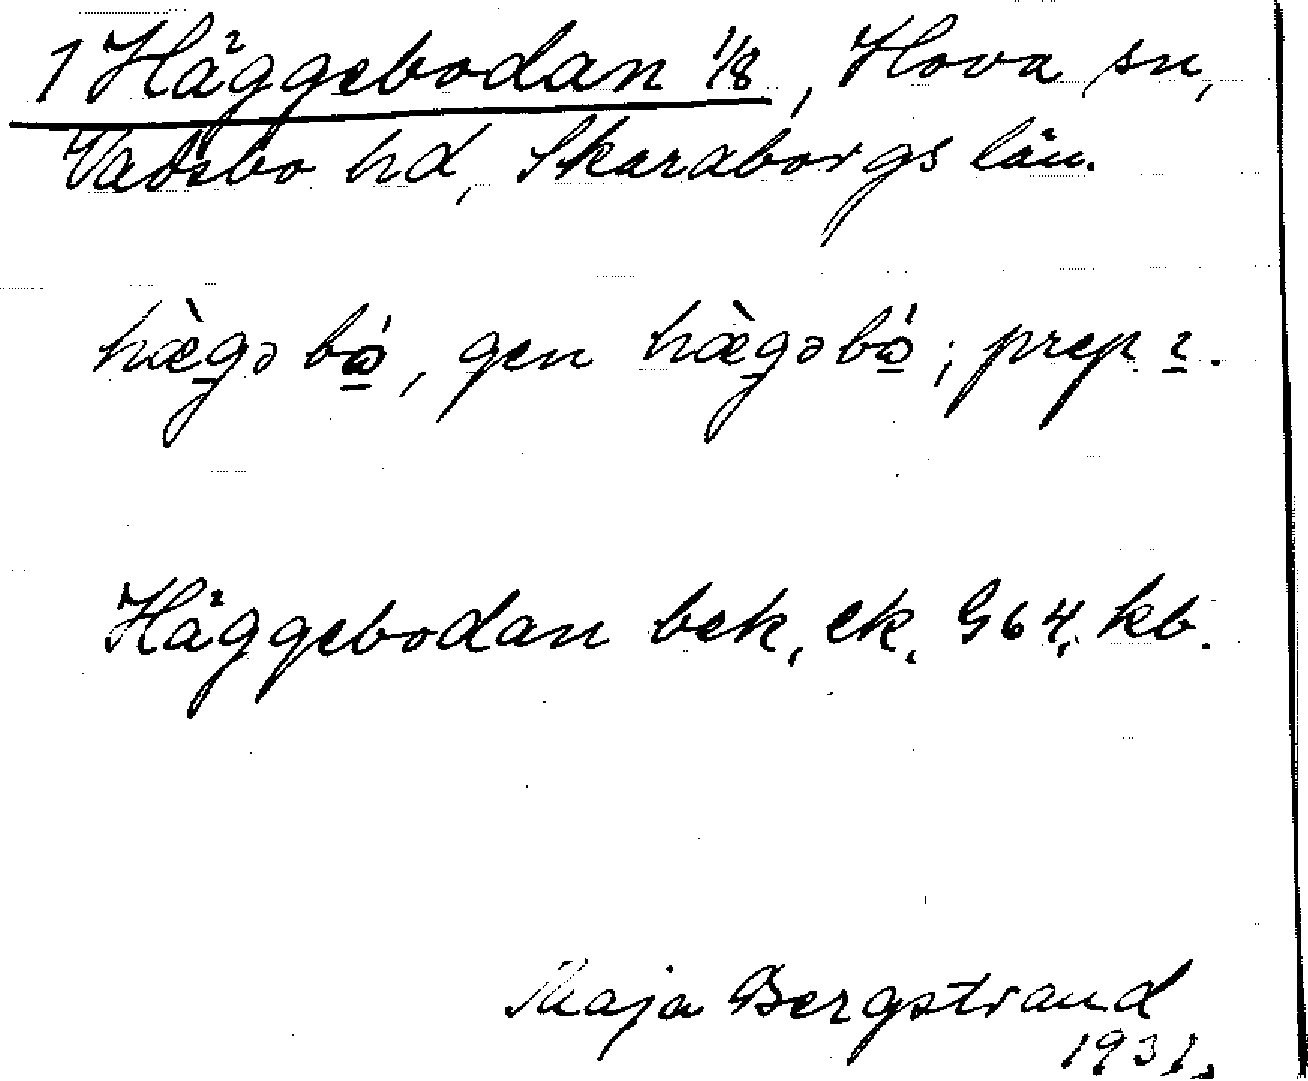 1 Häggebodan 1/8, Hova sn,
Vadsbo hd, Skaraborgs län.
hæ̀gə bó̱, gen hæ̀gəbó̱; prep. ı̱.
Häggebodan bek, ek. G64, kb.
Maja Bergstrand
1931.